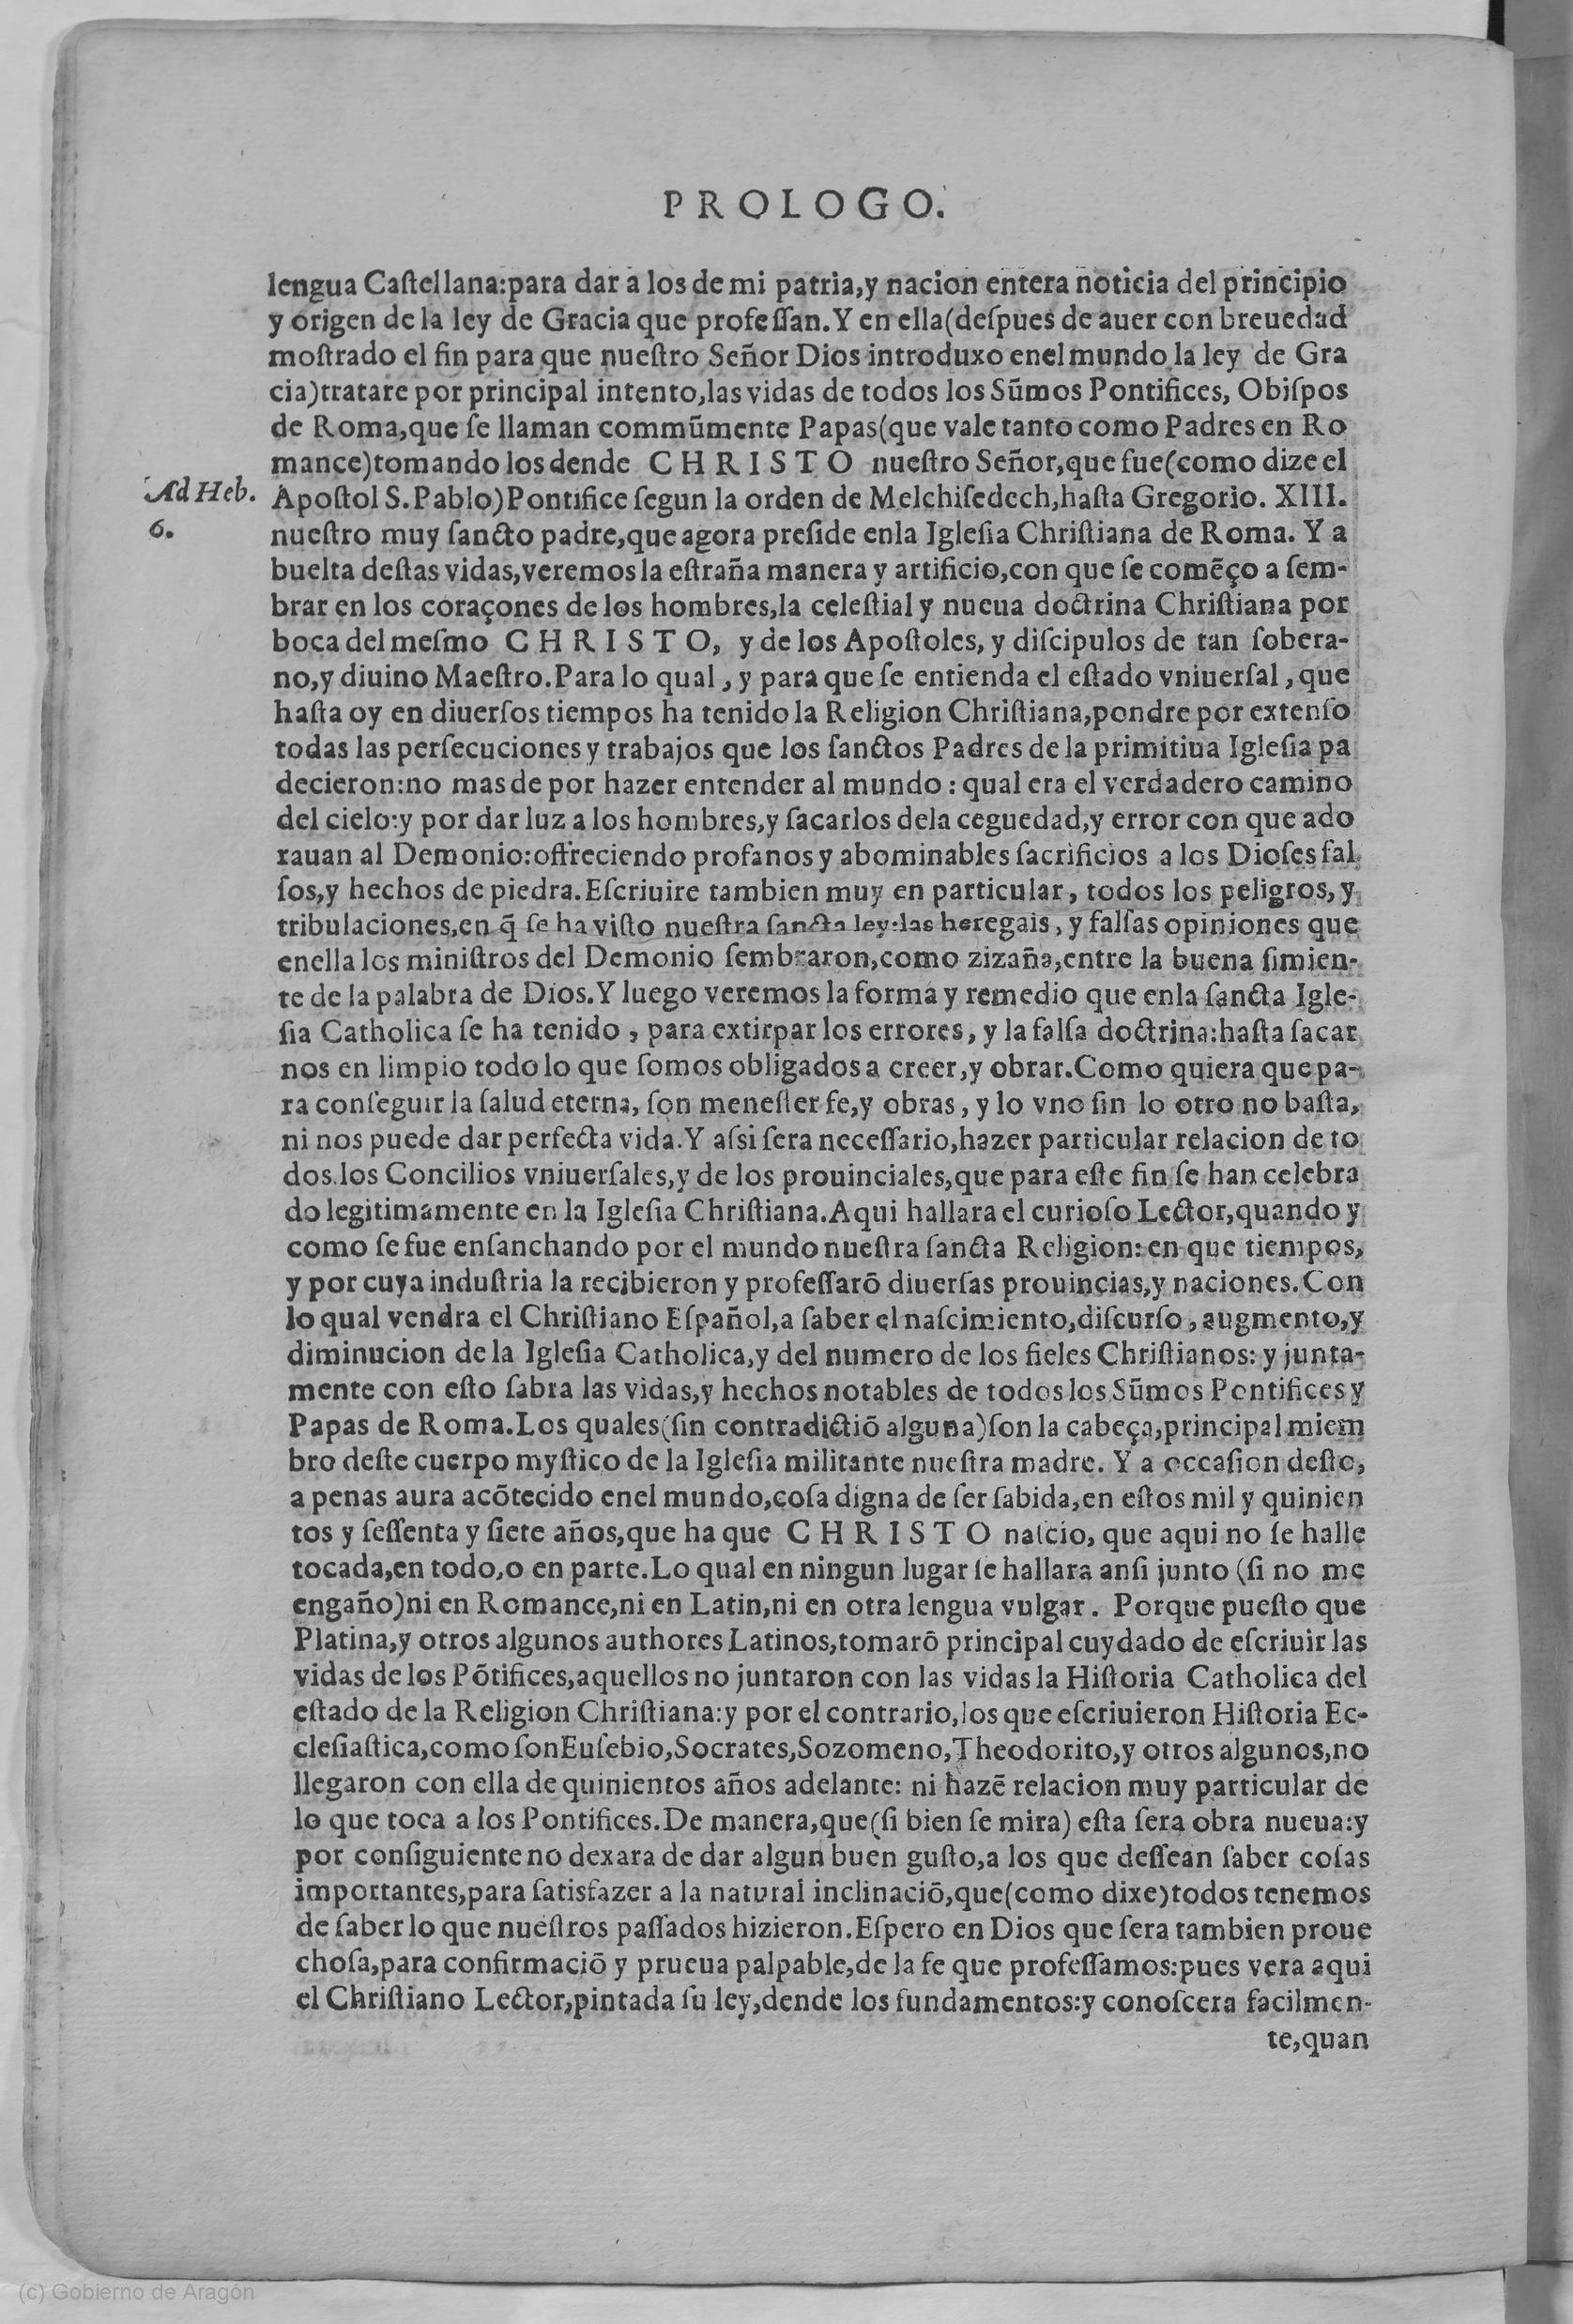 PROLOGO.
lengua Caſtellana:para dar a los de mi patria,y nacion entera noticia del principio
y origen de la ley de Gracia que profeſſan.Y en ella(deſpues de auer con breuedad
moſtrado el fin para que nueſtro Señor Dios introduxo enel mundo la ley de Gra
cia)tratare por principal intento,las vidas de todos los Sũmos Pontifices, Obiſpos
de Roma,que ſe llaman commũmente Papas(que vale tanto como Padres en Ro
mance)tomando los dende CHRISTO nueſtro Señor,que fue(como dize el
Ad Heb.
6.
Apoſtol S.Pablo)Pontifice ſegun la orden de Melchiſedech,haſta Gregorio. XIII.
nueſtro muy ſancto padre,que agora preſide enla Igleſia Chriſtiana de Roma. Y a
buelta deſtas vidas,veremos la eſtraña manera y artificio,con que ſe comẽço a ſem-
brar en los coraçones de los hombres,la celeſtial y nueua doctrina Chriſtiana por
boca del meſmo CHRISTO, y de los Apoſtoles, y diſcipulos de tan ſobera-
no,y diuino Maeſtro.Para lo qual, y para que ſe entienda el eſtado vniuerſal, que
haſta oy en diuerſos tiempos ha tenido la Religion Chriſtiana,pondre por extenſo
todas las perſecuciones y trabajos que los ſanctos Padres de la primitiua Igleſia pa
decieron:no mas de por hazer entender al mundo : qual era el verdadero camino
del cielo:y por dar luz a los hombres,y ſacarlos dela ceguedad,y error con que ado
rauan al Demonio:offreciendo profanos y abominables ſacrificios a los Dioſes fal
ſos,y hechos de piedra.Eſcriuire tambien muy en particular, todos los peligros, y
tribulaciones,en q̃ ſe ha viſto nueſtra ſancta ley:las heregais, y falſas opiniones que
enella los miniſtros del Demonio ſembraron,como zizaña,entre la buena ſimien-
te de la palabra de Dios.Y luego veremos la forma y remedio que enla ſancta Igle-
ſia Catholica ſe ha tenido, para extirpar los errores, y la falſa doctrina:haſta ſacar
nos en limpio todo lo que ſomos obligados a creer,y obrar.Como quiera que pa-
ra conſeguir la ſalud eterna, ſon meneſter fe,y obras, y lo vno ſin lo otro no baſta,
ni nos puede dar perfecta vida.Y aſsi ſera neceſſario,hazer particular relacion de to
dos los Concilios vniuerſales,y de los prouinciales,que para eſte fin ſe han celebra
do legitimamente en la Igleſia Chriſtiana.Aqui hallara el curioſo Lector,quando y
como ſe fue enſanchando por el mundo nueſtra ſancta Religion: en que tiempos,
y por cuya induſtria la recibieron y profeſſarõ diuerſas prouincias,y naciones.Con
lo qual vendra el Chriſtiano Eſpañol,a ſaber el naſcimiento,diſcurſo, augmento,y
diminucion de la Igleſia Catholica,y del numero de los fieles Chriſtianos: y junta-
mente con eſto ſabra las vidas,y hechos notables de todos los Sũmos Pontifices y
Papas de Roma.Los quales(ſin contradictiõ alguna)ſon la cabeça,principal miem
bro deſte cuerpo myſtico de la Igleſia militante nueſtra madre. Y a occaſion deſto,
a penas aura acõtecido enel mundo,coſa digna de ſer ſabida,en eſtos mil y quinien
tos y ſeſſenta y ſiete años,que ha que CHRISTO naſcio, que aqui no ſe halle
tocada,en todo,o en parte.Lo qual en ningun lugar ſe hallara anſi junto (ſi no me
engaño)ni en Romance,ni en Latin,ni en otra lengua vulgar. Porque pueſto que
Platina,y otros algunos authores Latinos,tomarõ principal cuydado de eſcriuir las
vidas de los Põtifices,aquellos no juntaron con las vidas la Hiſtoria Catholica del
eſtado de la Religion Chriſtiana:y por el contrario,los que eſcriuieron Hiſtoria Ec-
cleſiaſtica,como ſon Euſebio,Socrates,Sozomeno,Theodorito,y otros algunos,no
llegaron con ella de quinientos años adelante: ni hazẽ relacion muy particular de
lo que toca a los Pontifices.De manera,que(ſi bien ſe mira) eſta ſera obra nueua:y
por conſiguiente no dexara de dar algun buen guſto,a los que deſſean ſaber coſas
importantes,para ſatisfazer a la natural inclinaciõ,que(como dixe)todos tenemos
de ſaber lo que nueſtros paſſados hizieron.Eſpero en Dios que ſera tambien proue
choſa,para confirmaciõ y prueua palpable,de la fe que profeſſamos:pues vera aqui
el Chriſtiano Lector,pintada ſu ley,dende los fundamentos:y conoſcera facilmen-
te,quan
(c) Gobierno de Aragón